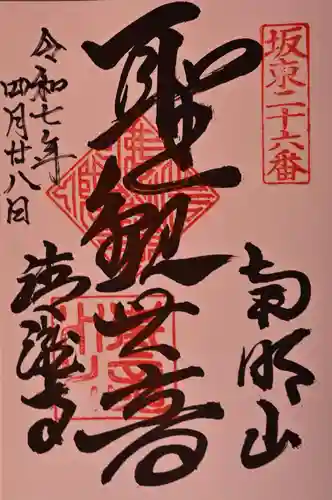 坂東二十六番
南明山
聖観世音
令和七年
四月廿八日
清滝寺